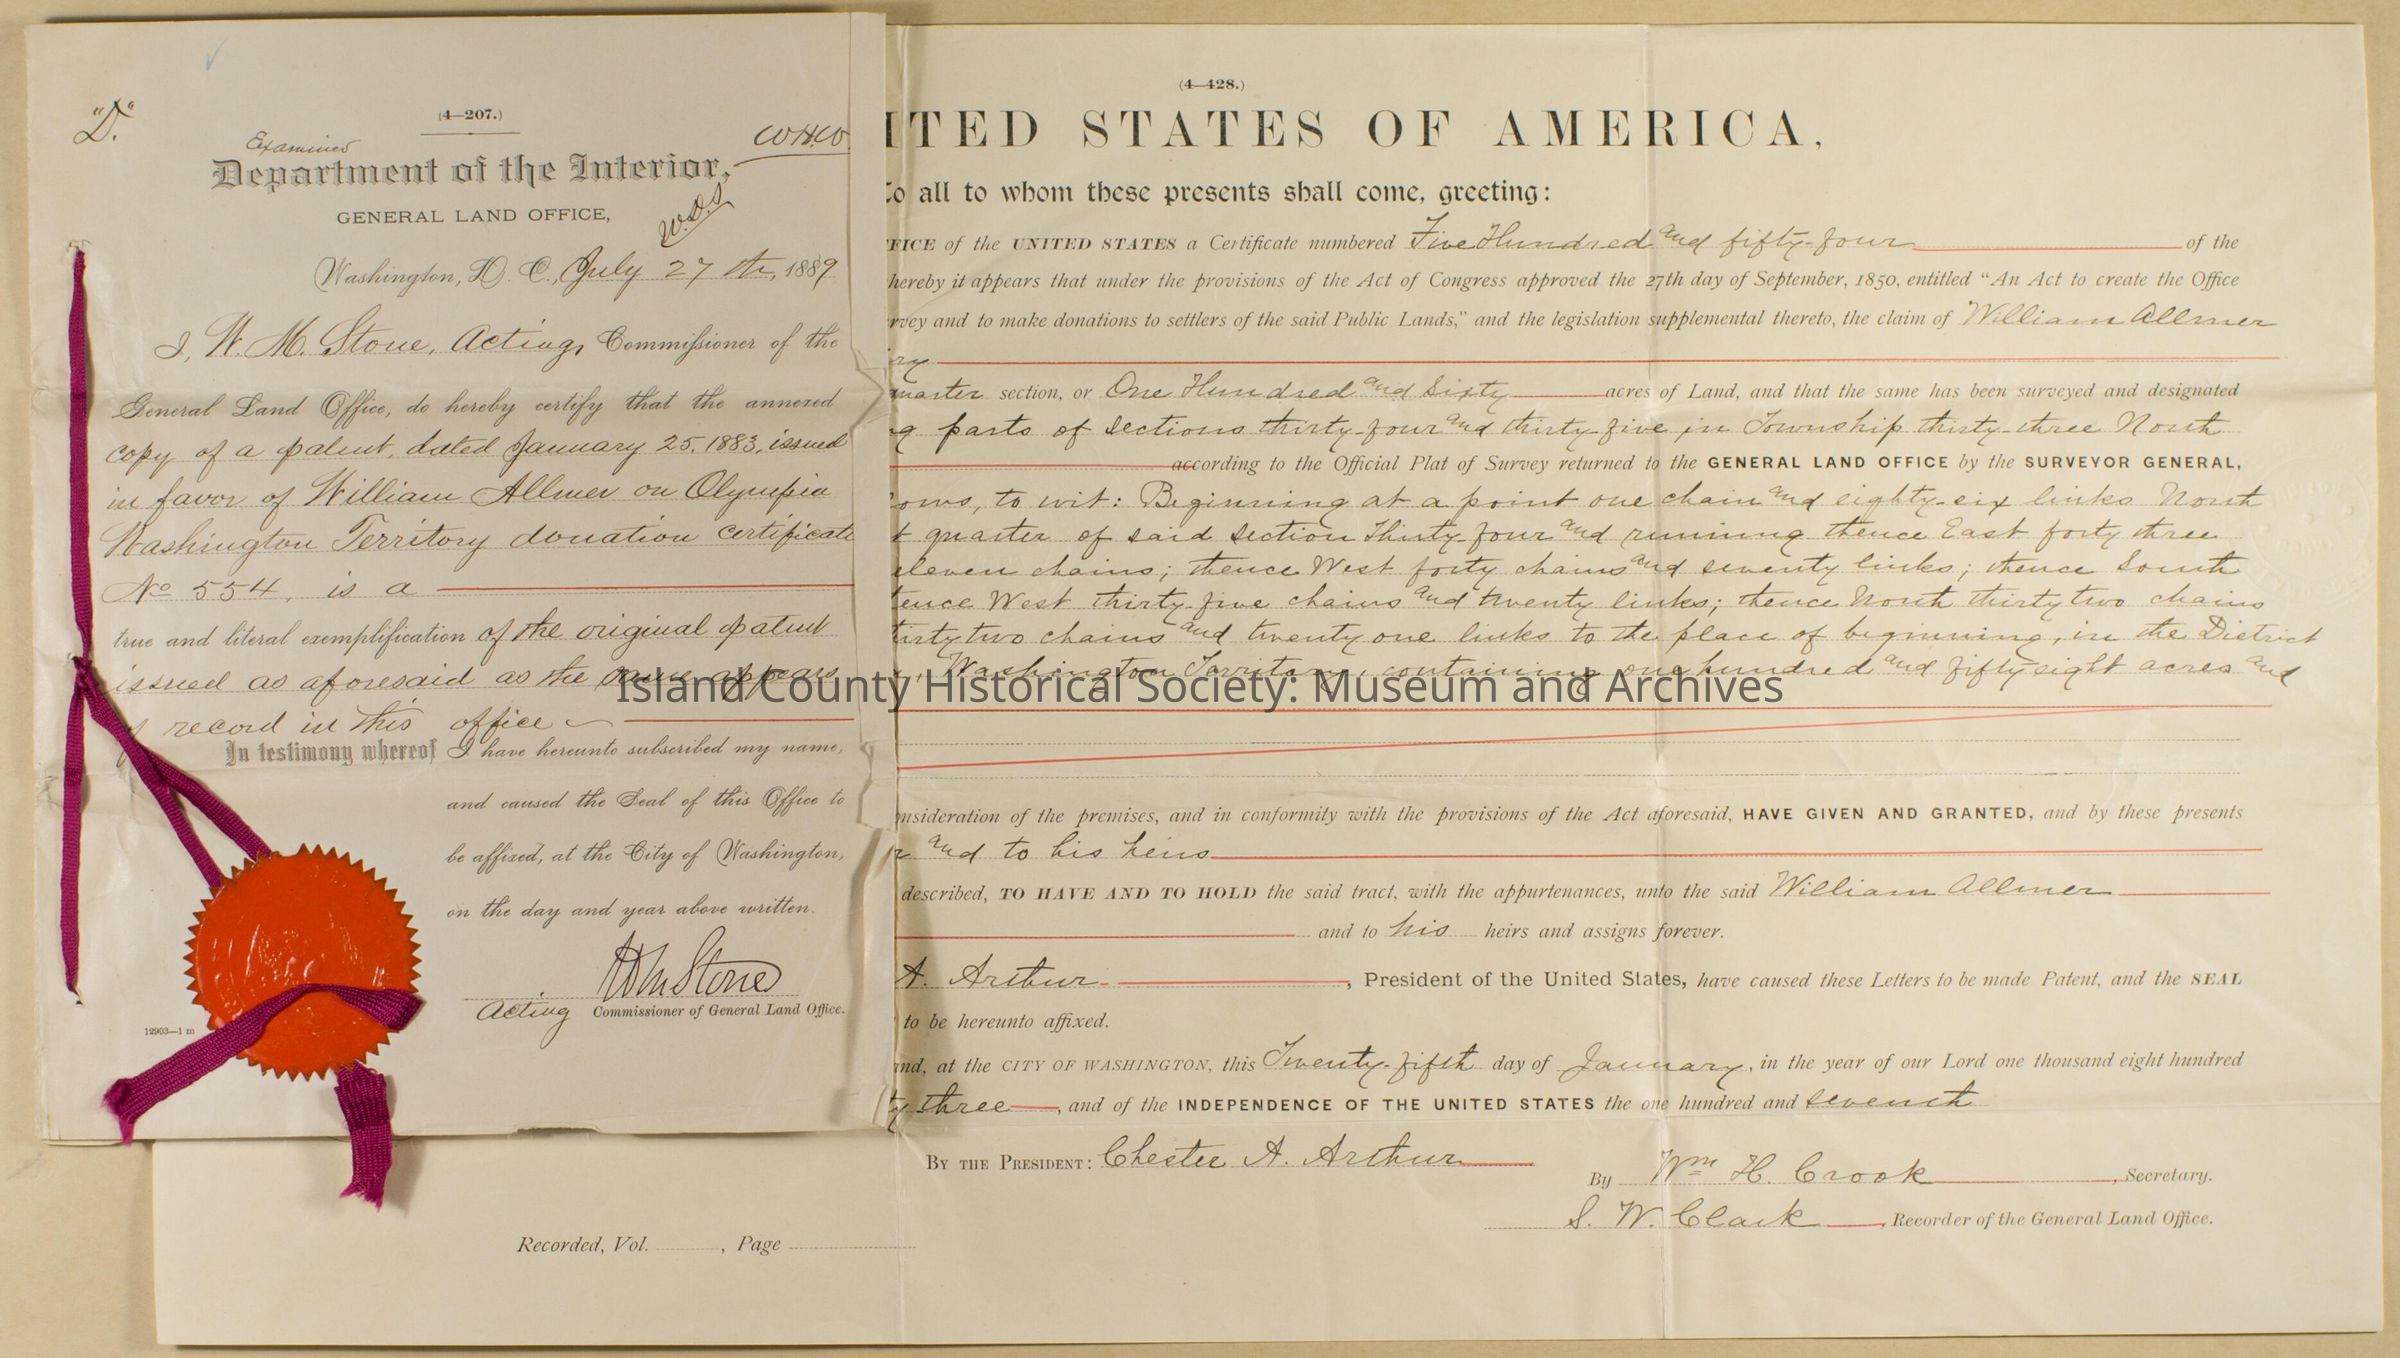 "D."
(4—207.)
Examined
Department of the Interior,
GENERAL LAND OFFICE,
Washington, D. C., July 27th, 1889
I, W. M. Stone, Acting Commissioner of the
General Land Office, do hereby certify that the annexed
copy of a patent, dated January 25. 1883, issued
in favor of William Allmer on Olympia
Washington Territory donation certificate
No 554, is a
true and literal exemplification of the original patent
issued as aforesaid as the same appears
of record in this office
In testimony whereof I have hereunto subscribed my name,
and caused the Seal of this Office to
be affixed, at the City of Washington,
on the day and year above written.
WmStone
Acting Commissioner of General Land Office.
12903—1 m
(4—428.)
ITED STATES OF AMERICA,
To all to whom these presents shall come, greeting:
FICE of the UNITED STATES a Certificate numbered Five Hundred and fifty-four of the
hereby it appears that under the provisions of the Act of Congress approved the 27th day of September, 1850, entitled "An Act to create the Office
rvey and to make donations to settlers of the said Public Lands," and the legislation supplemental thereto, the claim of William Allmer
ry
quarter section, or One Hundred and Sixty acres of Land, and that the same has been surveyed and designated
g parts of Sections thirty-four and thirty-five in Township thirty-three North
according to the Official Plat of Survey returned to the GENERAL LAND OFFICE by the SURVEYOR GENERAL,
ows, to wit: Beginning at a point one chain and eighty-six links North
t quarter of said Section Thirty-four and running thence East forty three
eleven chains; thence West forty chains and seventy links; thence South
ence West thirty-five chains and twenty links; thence North thirty two chains
irty two chains and twenty one links to the place of beginning, in the District
, Washington Territory, containing one hundred and fifty-eight acres and
Island County Historical Society: Museum and Archives
nsideration of the premises, and in conformity with the provisions of the Act aforesaid, HAVE GIVEN AND GRANTED, and by these presents
r and to his heirs
described, TO HAVE AND TO HOLD the said tract, with the appurtenances, unto the said William Allmer
and to his heirs and assigns forever.
A. Arthur, President of the United States, have caused these Letters to be made Patent, and the SEAL
to be hereunto affixed.
nd, at the CITY OF WASHINGTON, this Twenty-fifth day of January, in the year of our Lord one thousand eight hundred
ty three, and of the INDEPENDENCE OF THE UNITED STATES the one hundred and seventh
BY THE PRESIDENT: Chester A. Arthur
By Wm H. Crook, Secretary.
S. W. Clark, Recorder of the General Land Office.
Recorded, Vol. , Page